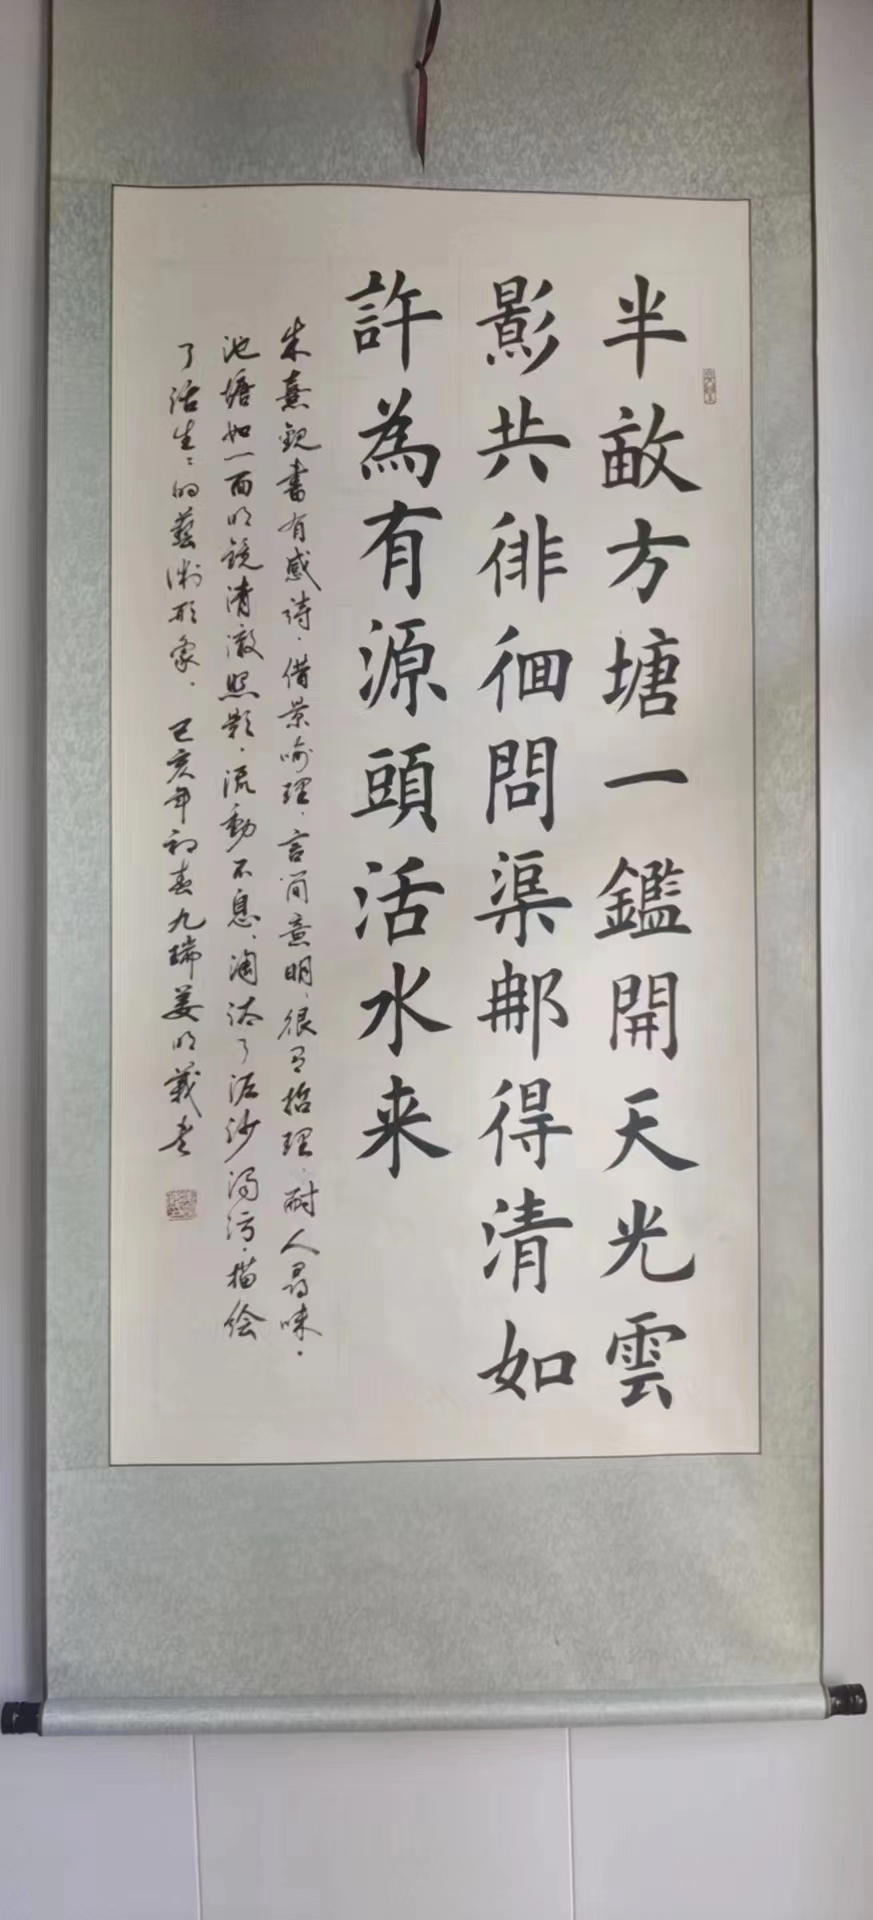 半畝方塘一鑑開天光雲
影共徘徊問渠那得清如
許為有源頭活水来
朱熹觀書有感诗，借景喻理，言简意明，很有哲理，耐人尋味，
池塘如一面明镜清澈照影，流動不息，淘汰了泥沙濁污，描绘
了活生々的藝術形象。己亥年初春九瑞姜明義书